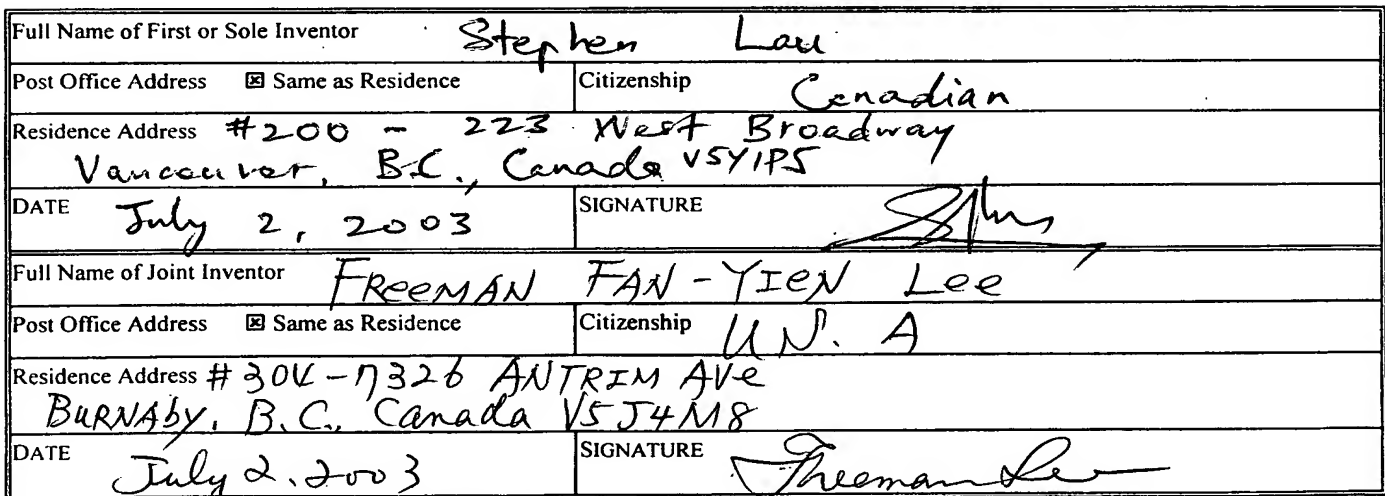 Full Name of First or Sole Inventor Stephen Lau
Post Office Address ☒ Same as Residence Citizenship Canadian
Residence Address #200 - 223 West Broadway
Vancouver, B.C., Canada V5Y1P5
DATE July 2, 2003 SIGNATURE
Full Name of Joint Inventor FReeMAN FAN-YIeN Lee
Post Office Address ☒ Same as Residence Citizenship
Residence Address # 7326 ANTRIM AVe
BURNAby, B.C., Canada V5J4M8
DATE July 2, 2003 SIGNATURE Freeman Lee